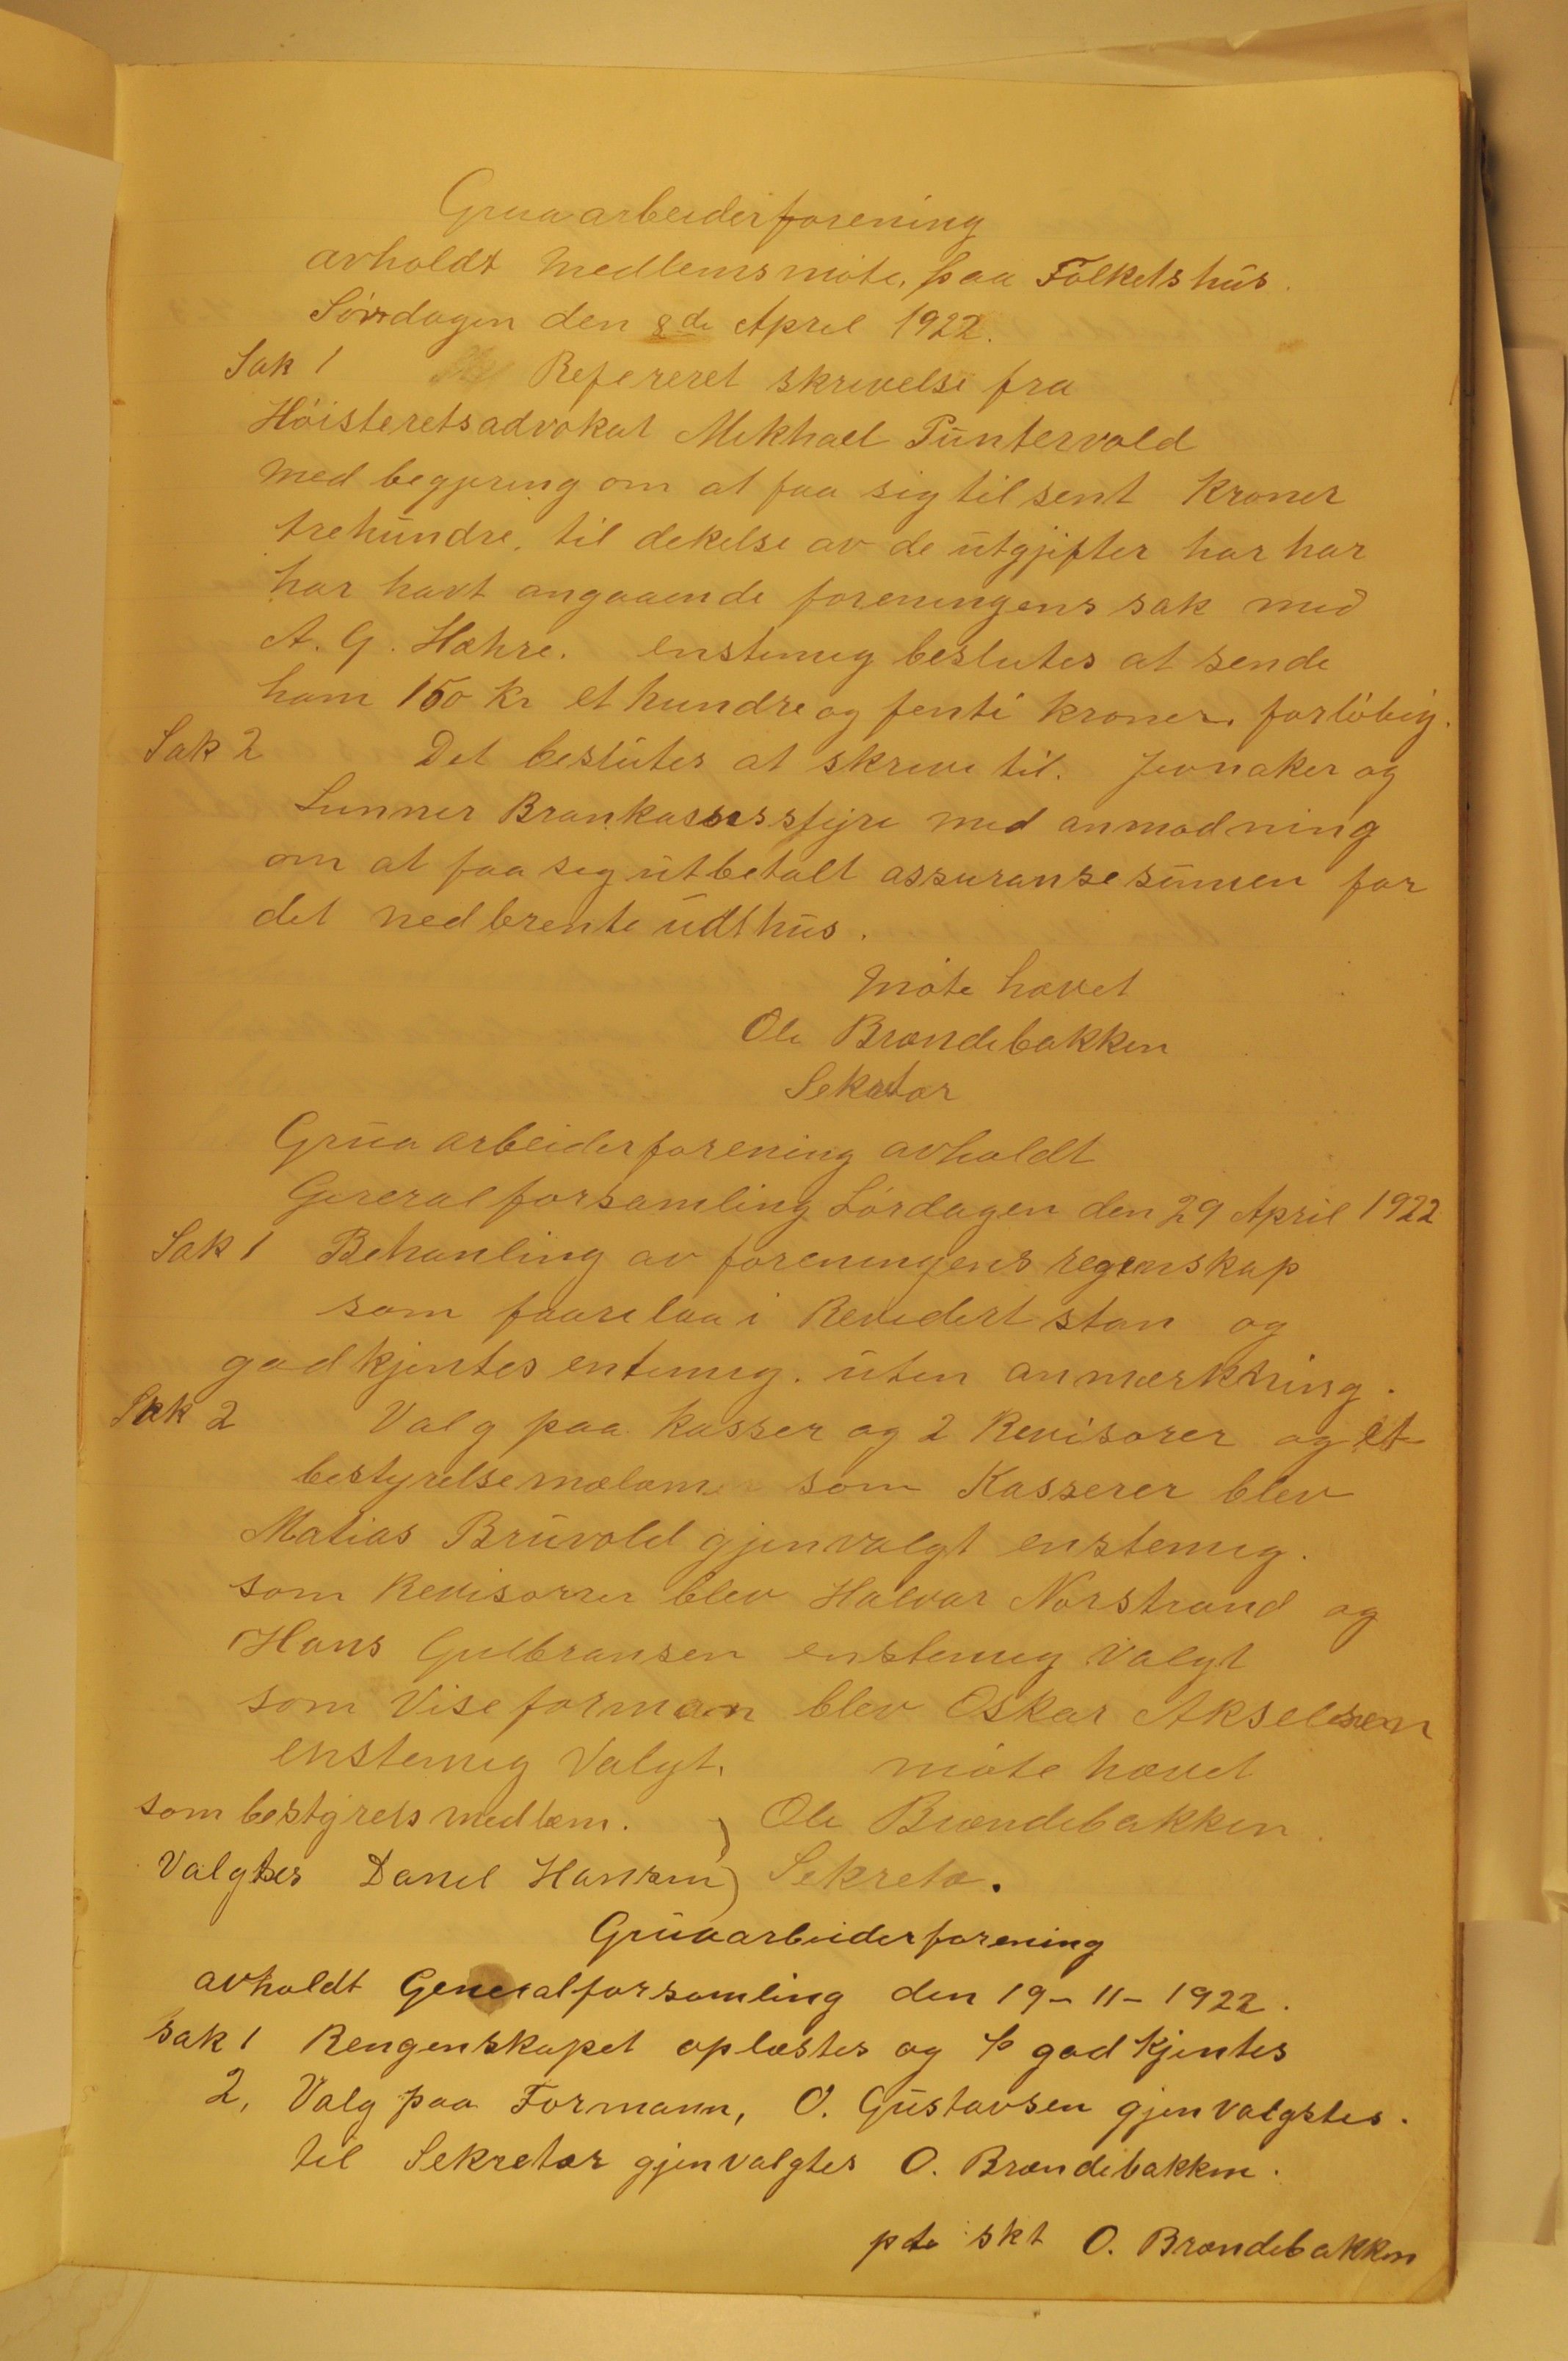 Gruaarbeiderforening
avholdt Medlemsmöte, paa Folketshus.
Sövrdagen den 8de April 1922.
Sak 1 Refereret skrivelse fra
Höisteretsadvokat Mikhael Puntervold
med begjæring om at faa sig tilsent kroner
trehundre, til dekelse av de utgjifter har har
har havt angaaende foreningens sak med
A. G. Hæhre. enstemig beslutes at sende
ham 150 kr et hundre og femti kroner, forlöbig.
Sak 2 Det beslutes at skrive til. Jevnaker og
Lunner Brankassesstyre med anmodning
om at faa seg utbetalt assuransesumen for
det nedbrente udthus.
Möte hævet
Ole Brændebakken
Sekretær
Grua arbeiderforening avholdt
Generalforsamling Lördagen den 29 April 1922
Sak 1 Behanling av foreningens regenskap
som faarelaa i Revidert stan og
godkjentes entemig. uten anmerkning.
Sak 2 Valg paa kasser og 2 Revisorer og et
bestyrelsemælam som Kasserer blev
Matias Bruvold gjenvalgt enstemig.
som Revisorrer blev Halvar Norstrand og
Hans Gulbransen enstemig valgt
som Viseforman blev Oskar Akselsen
enstemig Valgt. möte hævet
som bestyrelsmedlem. ) Ole Brændebakken.
Valgtes Danel Hansen) Sekretæ.
Gruaarbeiderforening
avholdt Generalforsamling den 19-11-1922.
Sak 1 Rengenskapet oplæstes og godkjentes
2, Valg paa Formann, O. Gustavsen gjenvalgstes.
til Sekretær gjenvalgtes O. Brændebakken.
pte skt O. Brændebakken